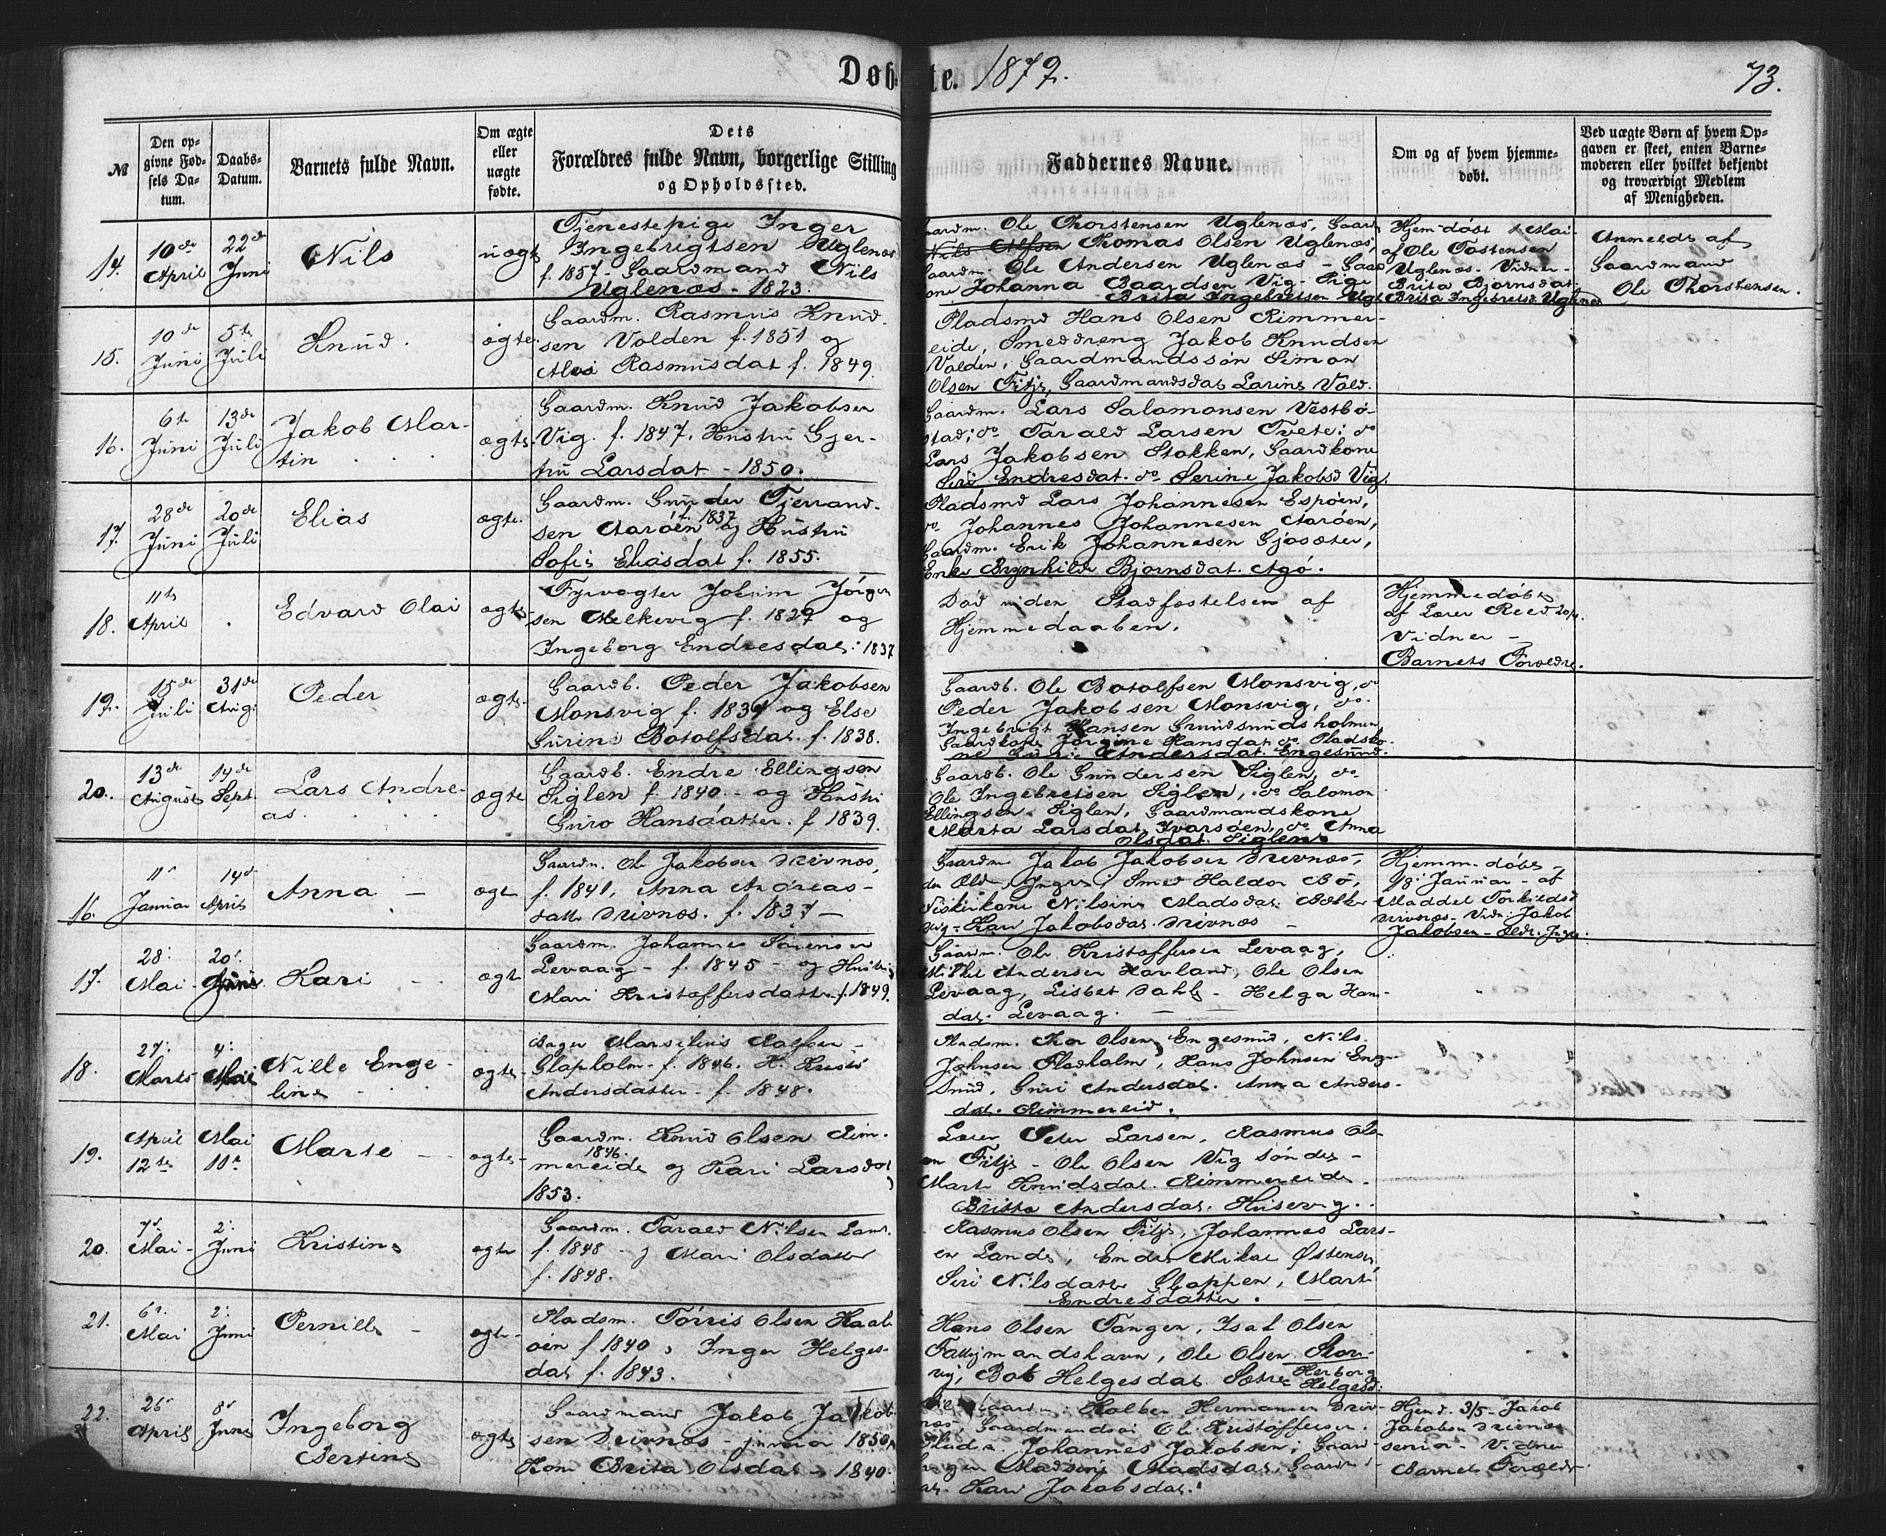 Døbte. 1879. 73.
№
Den opgivne Fødsels Datum.
Daabs-Datum.
Barnets fulde Navn.
Om ægte eller uægte fødte.
Dets Forældres fulde Navn, borgerlige Stilling og Opholdssted.
Faddernes Navne.
Om og af hvem hjemmedøbt.
Ved uægte Børn af hvem Opgaven er skeet, enten Barnemoderen eller hvilket bekjendt og troværdigt Medlem af Menigheden.
14. 10de April 22de Juni Nils uægte
Tjenestepige Inger
Ingebrigtsen Uglenæs
f. 1857 - Gaardmand Nils
Uglenæs - 1823.
Gaardm. Ole Thorstensen Uglenæs, Gaard
Thomas Olsen Uglenæs,
Gaardm. Ole Andersen Uglenæs - Gaard
kone Johanna Baardsen Vig - Pige
Brita Ingebretsen Ugl
Hjemdøbt
af Ole Tostensen
Uglenæs - Vidner -
Brita Bjørnsdat.
Brita Ingebretsd. Uglenæs
Anmeldt af
Gaardmand
Ole Thorstensen.
15. 10de Juni 5te Juli Knud. ægte
Gaardm. Rasmus Knud-
sen Volden f. 1851 og
Rasmusdat f. 1849.
Pladsmd Hans Olsen Rimmer-
eide, Smeddreng Jakob Knudsen
Volden, Gaardmandssøn Simon
Olsen Fitje, Gaardmandsdat. Larine Vold.
16. 6te Juni 13de Juli Jakob Mar-
tin ægte
Gaardm. Knud Jakobsen
Vig. f. 1847. Hustru Gjer-
tru Larsdat - 1850.
Gaardm. Lars Salomonsen Vestbø-
stad; do Tarald Larsen Tveit: do
Lars Jakobsen Stokken, Gaardkone
Siri Endresdat. do Serine Jakobsd Vig.
17. 28de Juni 20de Juli Elias ægte
Gaardm. Gunder Tjerrand-
sen Aarøen f. 1837 og Hustru
Sofie Eliasdat f. 1855.
Pladsmd Lars Johannesen Espøen,
do Johannes Johannesen Aarøen,
Gaardm. Erik Johannesen Gjøsæter,
Enke Brynhilde Bjørnsdat. Agø.
18. 11te April Edvard Olai ægte
Fyrvogter Jokim Jørgen
sen Melkevig f. 1829 og
Ingeborg Endresdat: 1837
Død uden Stadfæstelsen af
Hjemmedaaben.
Hjemmedøbt
af Lærer Reed 20/4.
Vidner -
Barnets Forældre.
19. 15de Juli 31de Aug. Peder ægte
Gaardb. Peder Jakobsen
Monsvig f. 1834 og Else
Gurine Botolfsdat. f. 1838.
Gaardb. Ole Botolfsen Monsvig, do
Peder Jakobsen Monsvig, do.
Ingebrigt Hansen Grundsundsholmen
Gaardkone Jørgine Hansdat do Pladsko-
ne Guri Andersdat. Engesund.
20. 13de August 14de Sept. Lars Andre-
as. ægte
Gaardb. Endre Ellingsen
Siglen f. 1840. - og Hustru
Guro Hansdatter. f. 1839.
Gaardb. Ole Gundersen Siglen, do
Ole Ingebretsen Siglen, do Salomon
Ellingsen Siglen, Gaardmandskone
Marta Larsdat. Ivarsøen, do Anna
Olsdat. Siglen.
16. 11te Januar 14de April Anna ægte
Gaardm. Ole Jakobsen Drivnæs,
f. 1841, Anna Andreas-
datter Drivnæs. f. 1837 -
Gaardm. Jakob Jakobsen Drivnæs,
den Æld. Inger, Smed Haldor Bø,
Fiskerkone Nilsine Madsdat.
Kari Jakobsdat. Drivnæs
Hjemm. døbt -
18. Januar - af
Maddel Torkildsd.
Drivnæs - Vidn: Jakob
Jakobsen - Eldr. Inger
17. 28. Mai 20. Juni Kari ægt
Gaardm. Johannes Sørensen
Levaag - f. 1845 - og Hustru
Mari Kristoffersdatter f. 1849.
Gaardm. Ole Kristoffersen Levaag,
Mikkel Andersen Havland, Ole Olsen
Levaag, Lisbet Dahl - Helga Han-
dat. Levaag.
18. 27. Marts 4. Mai Nille Enge-
line ægte
Marsilius Rolfsen -
Glapholm - f. 1846. H. Kristi
Andersdatter - f. 1848.
Tor Olsen Engesund, Nils
Johnsen Fladholm, Hans Johnsen Enge-
sund, Guri Andersdat. Anna Anders-
dat. Rimmereid.
19. April 12te Mai 11te Marte ægte
Gaardm. Knud Olsen Rim-
1846.
mereide og Kari Larsdat
1853.
Lærer Peter Larsen, Rasmus Ol-
sen Fitje - Ole Olsen Vig søndre -
Marte Knudsdat. Rimmereide.
Britta Andersdat. Husevig.
20. 7de Mai 2. Juni Kristine ægte
Gaardm. Tarald Nilsen Lande
f. 1848 - og Mari Olsdatter
f. 1848.
Rasmus Olsen Fitje, Johannes Lars-
en Lande, Endre Mikal Østensen
Siri Nilsdatter Slappen, Marte
Endresdatter.
21. 6te Mai 2. Juni Pernille ægte
Pladsm. Tørris Olsen Haab-
øen f. 1840, Inger Helges-
dat f. 1843.
Hans Olsen Tangen, Isak Olsen
Fattigmandshavn, Ole Olsen Kor-
vig, Helgesdat. Sætre Herborg
Helgesd.
22. 26de April 8de Juni Ingeborg
Bertine ægte
Gaardmand Jakob Jakob-
sen Drivnæs - junior 1850,
Kone Brita Olsdat - 1840.
Gaardm. Halbor Hermansen Driv-
næs - Gaardmandssøn Ole Kristoffersen
Johannes Jakobsen, Gaard-
Madsine Madsdat, Gaardm
dat. Kari Jakobsdat.
Hjemd. 3/5 - Jakob
Jakobsen Drivnæs
senior - Vidner
Barnets Forældre